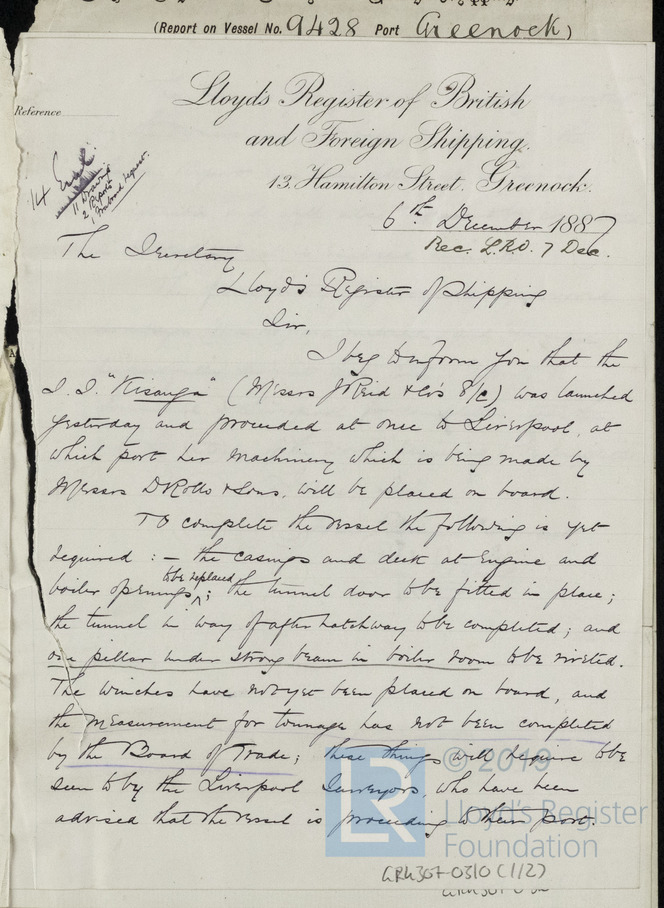 (Report on Vessel No. 9428 Port Greenock)
Reference
Lloyd's Register of British
and Foreign Shipping.
13, Hamilton Street, Greenock.
14 Encl.
11 Drawings
2 Reports
Freeboard request.
6th December 1887
Rec. L.R.O. 7 Dec.
The Secretary
Lloyd's Register of Shipping
Sir,
I beg to inform you that the
S.S. "Kisanga" (Messrs J Reid & Co's S/C) was launched
yesterday and proceeded at once to Liverpool, at
which port her machinery which is being made by
Messrs D Rollo & Sons, will be placed on board.
To complete the vessel the following is yet
required :- the casings and deck at Engine and
to be replaced
boiler openings ^; the tunnel door to be fitted in place;
the tunnel in way of after hatchway to be completed; and
one pillar under strong beam in boiler room to be riveted.
The winches have not yet been placed on board, and
the measurement for tonnage has not been completed
by the Board of Trade; these things will require to be
seen to by the Liverpool Surveyors, who have been
advised that the vessel is proceeding to their port.
© 2019
Lloyd's Register
Foundation
LR
GRK367-0310 (1/2)